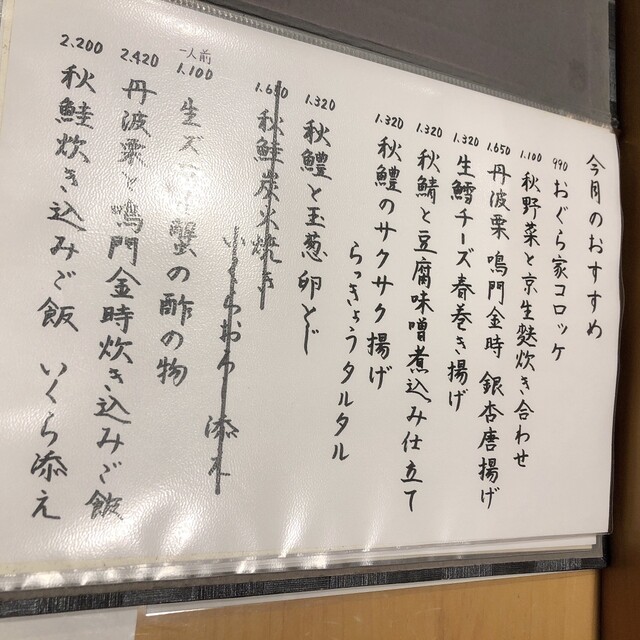 今月のおすすめ
990 おぐら家コロッケ
1.100 秋野菜と京生麩炊き合わせ
1.650 丹波栗 鳴門金時 銀杏唐揚げ
1.320 生鱈チーズ春巻き揚げ
1.320 秋鯖と豆腐味噌煮込み仕立て
1.320 秋鱧のサクサク揚げ
らっきょうタルタル
1.320 秋鱧と玉葱卵とじ
秋鮭炭火焼き
いくらおろし添え
一人前
1.100 生ズワイ蟹の酢の物
2.420 丹波栗と鳴門金時炊き込みご飯
2.200 秋鮭炊き込みご飯 いくら添え